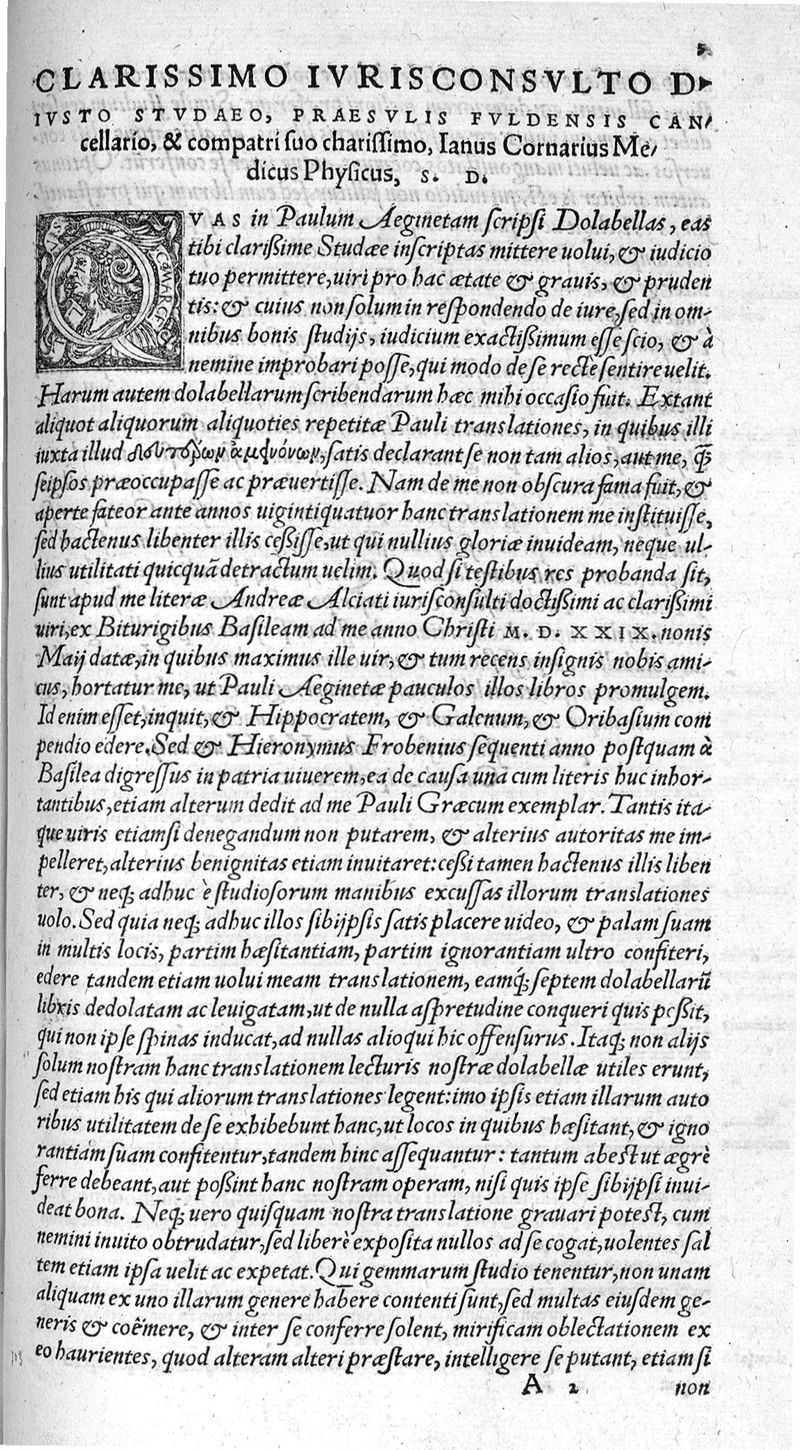 CLARISSIMO IVRISCONSVLTO D
IVSTO STVDAEO, PRAESVLIS FVLDENSIS CAN/
cellario, & compatri suo charissimo, Ianus Cornarius Me/
dicus Physicus, S. D.
QVAS in Paulum Aeginetam scripsi Dolabellas, eas
tibi clarißime Studæe inscriptas mittere uolui, & iudicio
tuo permittere, uiri pro hac ætate & grauis, & pruden
tis: & cuius non solum in respondendo de iure, sed in om-
nibus bonis studijs, iudicium exactißimum esse scio, & à
nemine improbari posse, qui modo de se recte sentire uelit.
Harum autem dolabellarum scribendarum hæc mihi occasio fuit. Extant
aliquot aliquorum aliquoties repetitæ Pauli translationes, in quibus illi
iuxta illud δευτέρων ἀμεινόνων, satis declarant se non tam alios, aut me, q̃
seipsos præoccupasse ac præuertisse. Nam de me non obscura fama fuit, &
aperte fateor ante annos uigintiquatuor hanc translationem me instituisse,
sed hactenus libenter illis ceßisse, ut qui nullius gloriæ inuideam, neque ul-
lius utilitati quicquã detractum uelim. Quod si testibus res probanda sit,
sunt apud me literæ Andreæ Alciati iurisconsulti doctißimi ac clarißimi
uiri, ex Biturigibus Basileam ad me anno Christi M. D. XXIX. nonis
Maij datæ, in quibus maximus ille uir, & tum recens insignis nobis ami-
cus, hortatur me, ut Pauli Aeginetæ pauculos illos libros promulgem.
Id enim esset, inquit, & Hippocratem, & Galenum, & Oribasium com
pendio edere. Sed & Hieronymus Frobenius sequenti anno postquam à
Basilea digressus in patria uiuerem, ea de causa una cum literis huc inhor-
tantibus, etiam alterum dedit ad me Pauli Græcum exemplar. Tantis ita-
que uiris etiamsi denegandum non putarem, & alterius autoritas me im-
pelleret, alterius benignitas etiam inuitaret: ceßi tamen hactenus illis liben
ter, & neq; adhuc è studiosorum manibus excussas illorum translationes
uolo. Sed quia neq; adhuc illos sibijpsis satis placere uideo, & palam suam
in multis locis, partim hæsitantiam, partim ignorantiam ultro confiteri,
edere tandem etiam uolui meam translationem, eamq́; septem dolabellarũ
libris dedolatam ac leuigatam, ut de nulla aspretudine conqueri quis poßit,
qui non ipse spinas inducat, ad nullas alioqui hic offensurus. Itaq; non alijs
solum nostram hanc translationem lecturis nostræ dolabellæ utiles erunt,
sed etiam his qui aliorum translationes legent: imo ipsis etiam illarum auto
ribus utilitatem de se exhibebunt hanc, ut locos in quibus hæsitant, & igno
rantiam suam confitentur, tandem hinc assequantur: tantum abest ut ægrè
ferre debeant, aut poßint hanc nostram operam, nisi quis ipse sibijpsi inui-
deat bona. Neq; uero quisquam nostra translatione grauari potest, cum
nemini inuito obtrudatur, sed liberè exposita nullos ad se cogat, uolentes sal
tem etiam ipsa uelit ac expetat. Qui gemmarum studio tenentur, non unam
aliquam ex uno illarum genere habere contenti sunt, sed multas eiusdem ge-
neris & coëmere, & inter se conferre solent, mirificam oblectationem ex
eo haurientes, quod alteram alteri præstare, intelligere se putant, etiam si
A 2 non